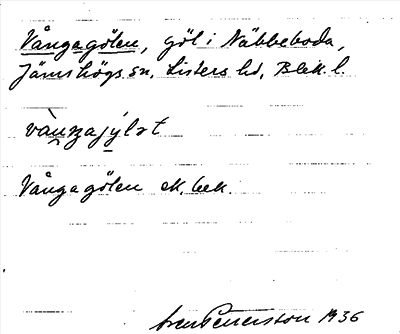 Vångagölen, göl i Näbbeboda,
Jämshögs sn, Listers hd, Blek. l.
Vångagölen ek. bek.
Sven Petersson 1936